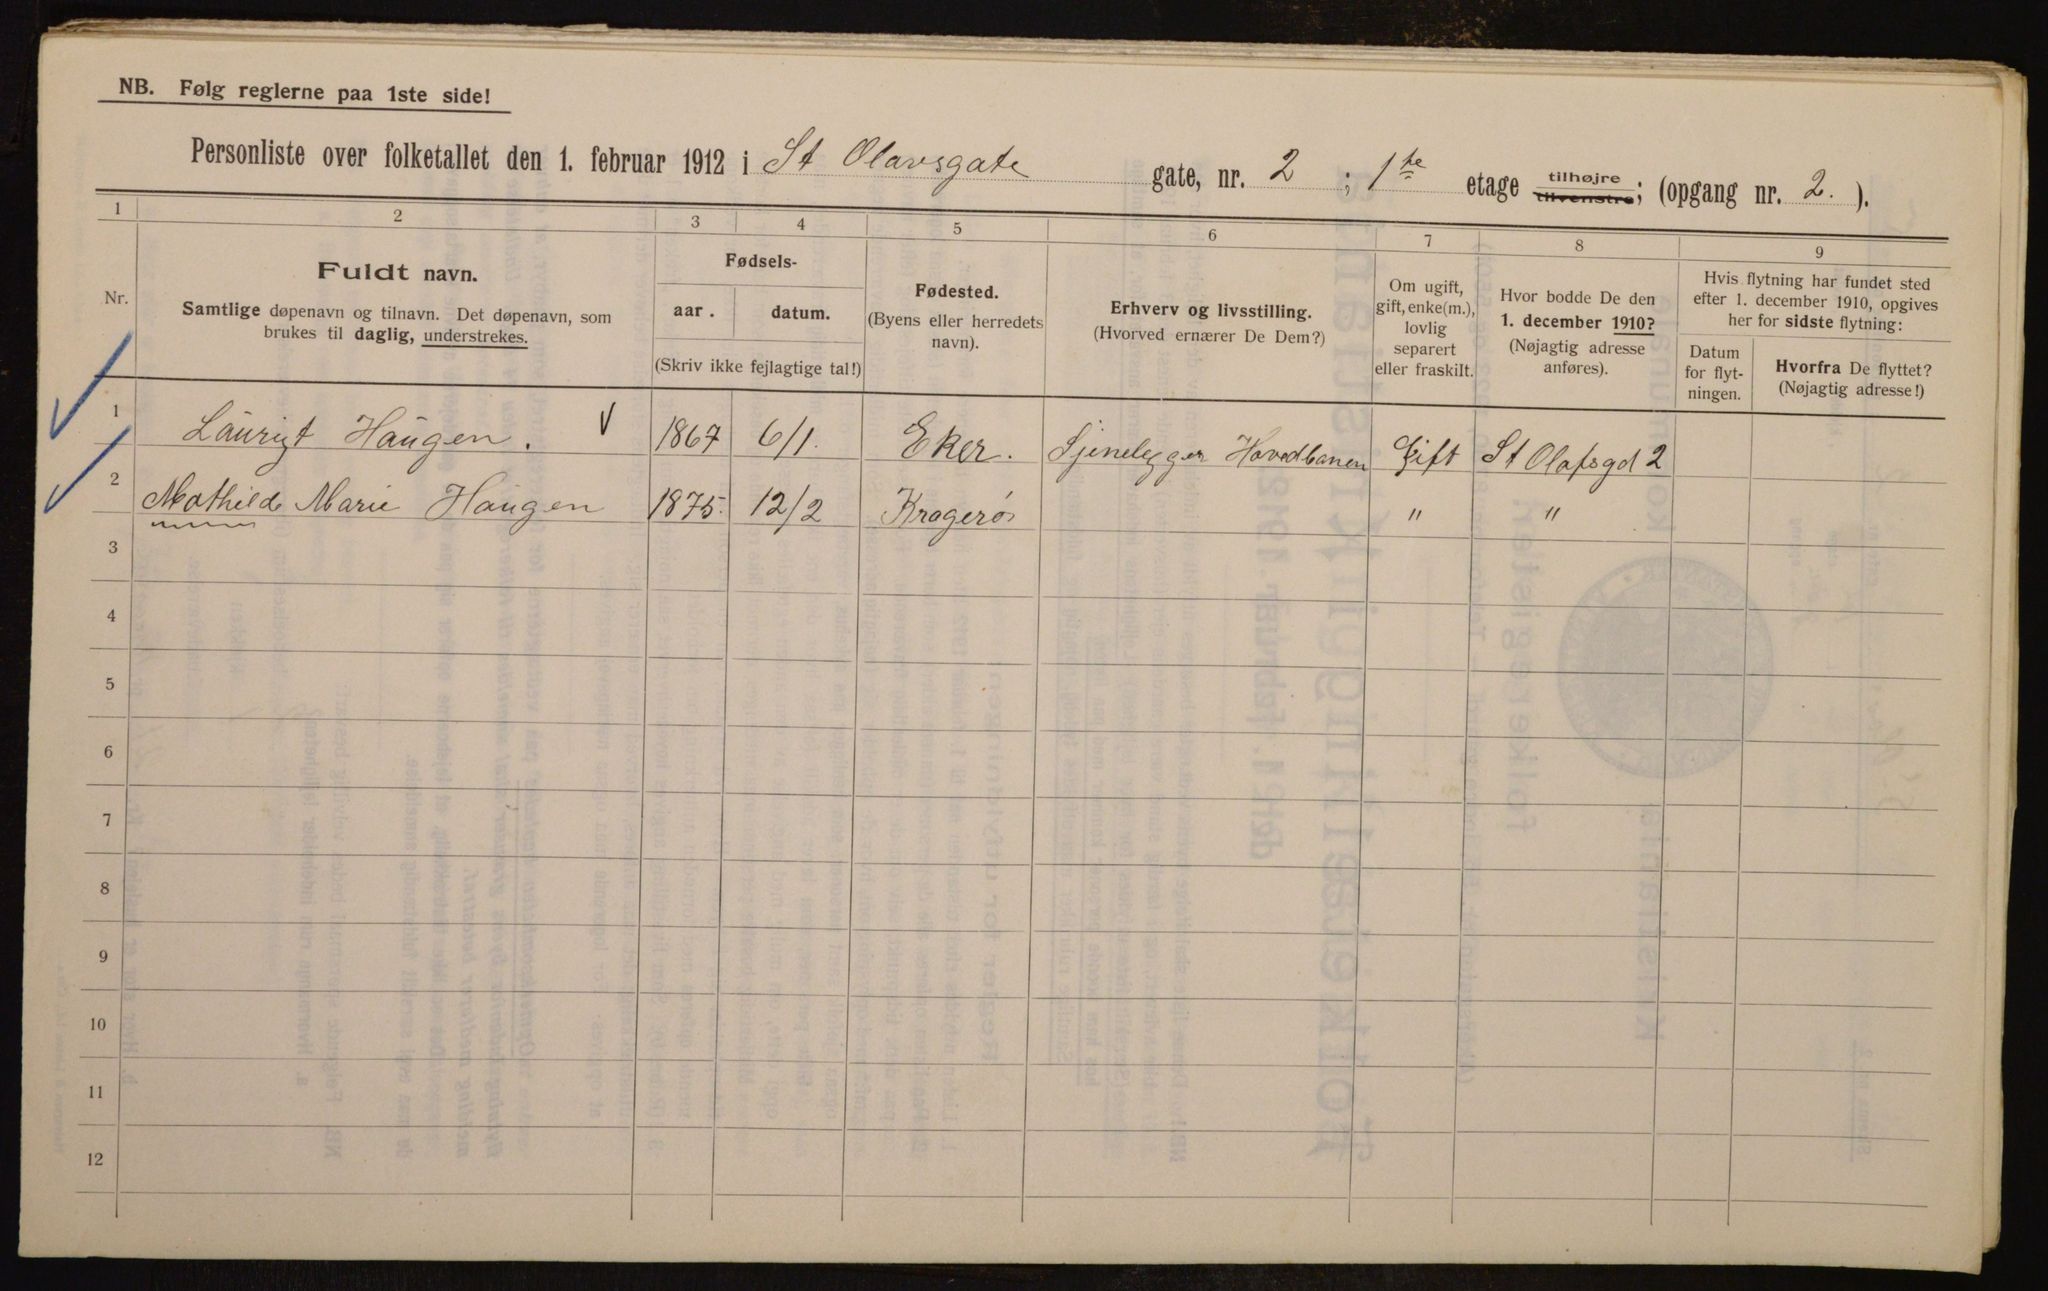 NB. Følg reglerne paa 1ste side!
Personliste over folketallet den 1. februar 1912 i St Olavsgate gate, nr. 2 ; 1ste etage tilhøjre tilvenstre; (opgang nr. 2. ).
1 2 3 4 5 6 7 8 9
Nr.
Fuldt navn.
Samtlige døpenavn og tilnavn. Det døpenavn, som
brukes til daglig, understrekes.
Fødsels-
aar. datum.
(Skriv ikke fejlagtige tal!)
Fødested.
(Byens eller herredets
navn).
Erhverv og livsstilling.
(Hvorved ernærer De Dem?)
Om ugift,
gift, enke(m.),
lovlig
separert
eller fraskilt.
Hvor bodde De den
1. december 1910?
(Nøjagtig adresse
anføres).
Hvis flytning har fundet sted
efter 1. december 1910, opgives
her for sidste flytning:
Datum
for flyt-
ningen.
Hvorfra De flyttet?
(Nøjagtig adresse!)
1 Lauritz Haugen. 1867 6/1. Eker. Sjinelegger Hovedbanen Gift St Olafsgd 2
2 Mathilde Marie Haugen 1875. 12/2 Kragerø " "
3
4
5
6
7
8
9
10
11
12